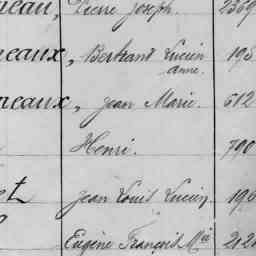 Pierre Joseph 2369
neaux, Bertrand Lucien 195
anne.
neaux, Jean Marie. 512
Henri. 790
et Jean Louis Lucien 196
Eugène François Mie 212